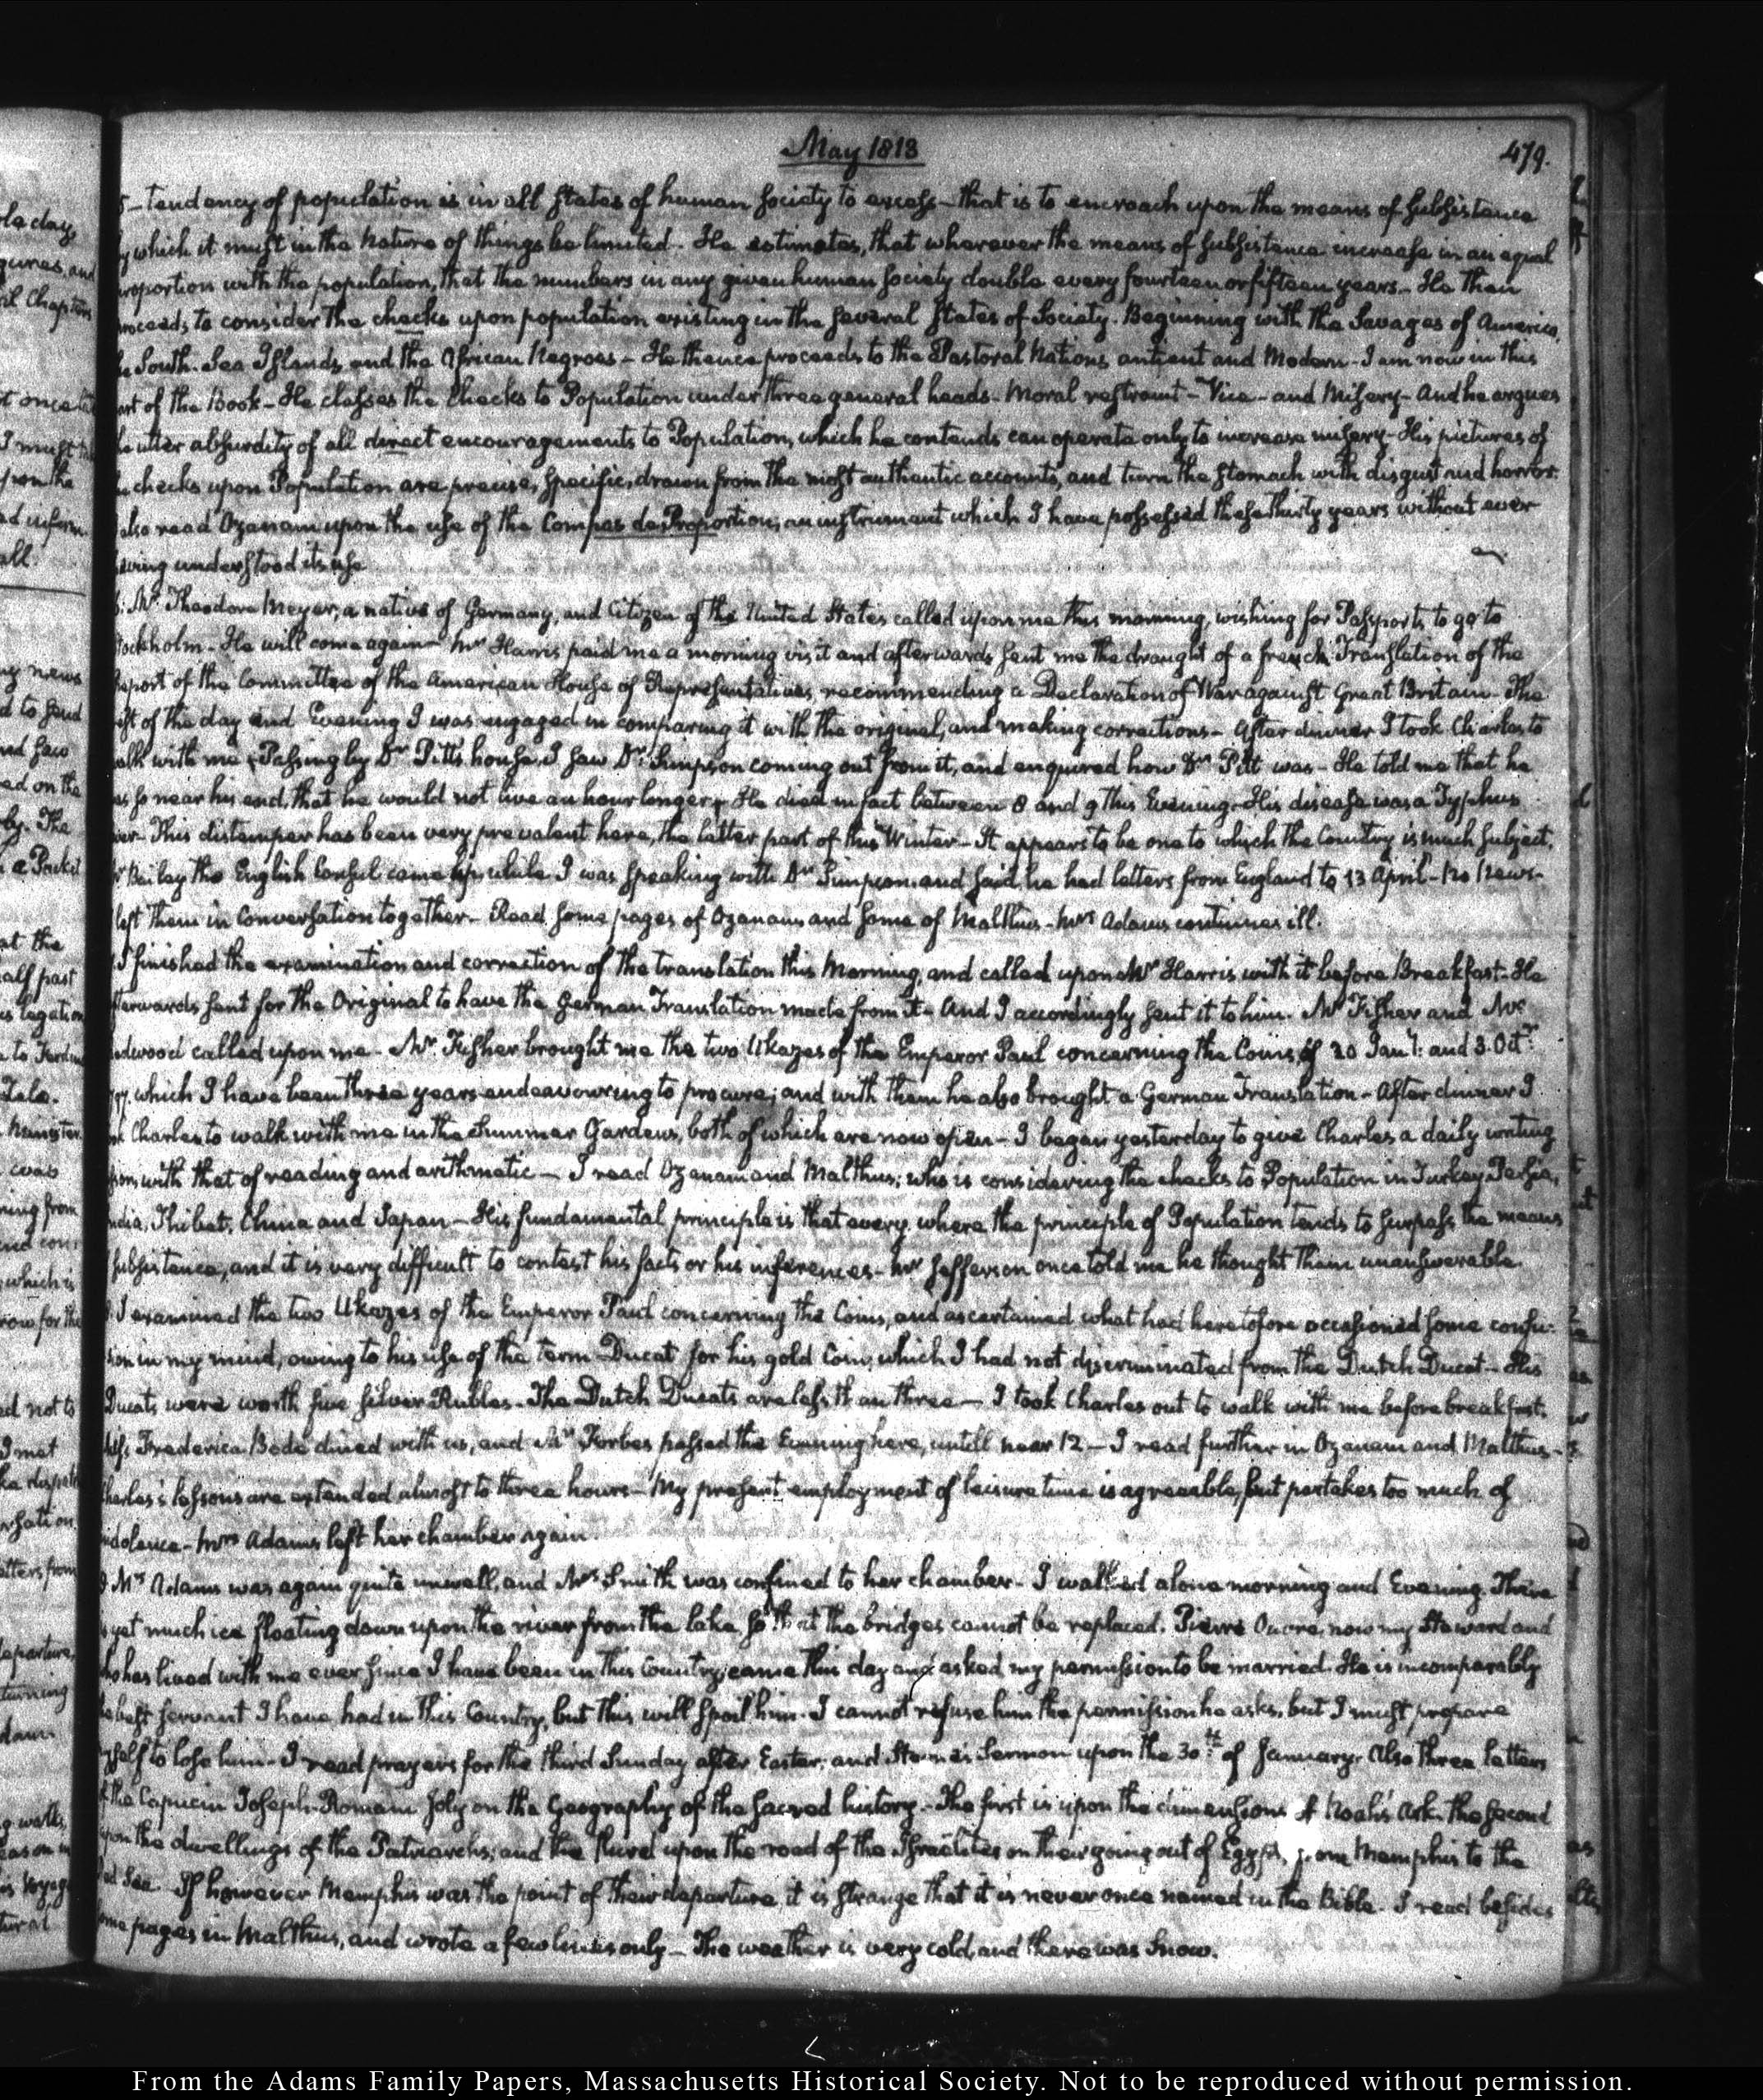 May 1813
479.
tendency of population is in all States of human Society to excess – that is to encroach upon the means of Subsistence
by which it must in the nature of things be limited. He estimates, that wherever the means of Subsistence increase in an equal
proportion with the population, that the numbers in any given human Society double every fourteen or fifteen years – He then
proceeds to consider the checks upon population existing in the several States of Society. Beginning with the Savages of America,
the South-Sea Islands, and the African Negroes – He thence proceeds to the Pastoral Nations antient and Modern – I am now in this
part of the Book – He classes the Checks to Population under three general heads – Moral restraint – Vice – and Misery – And he argues
the utter absurdity of all direct encouragements to Population, which he contends can operate only to increase misery – His pictures of
the checks upon Population are precise, specific, drawn from the most authentic accounts, and turn the stomach with disgust and horror.
also read Ozanam upon the use of the Compas de Proportion; an instrument which I have possessed these thirty years without ever
having understood its use
Mr. Theodore Meyer, a native of Germany, and Citizen of the United States called upon me this morning, wishing for Passports to go to
Stockholm – He will come again – Mr Harris paid me a morning visit and afterwards sent me the draught of a french Translation of the
Report of the Committee of the American House of Representatives recommending a Declaration of War against Great Britain – The
rest of the day and Evening I was engaged in comparing it with the original, and making corrections – After dinner I took Charles to
walk with me – Passing by Dr Pitt's house, I saw Dr Simpson coming out from it, and enquired how Dr Pitt was – He told me that he
was so near his end, that he would not live an hour longer – He died in fact between 8 and 9 this Evening – His disease was a Typhus
fever – This distemper has been very prevalent here, the latter part of this Winter – It appears to be one to which the Country is much subject.
Mr Bailey the English Consul came up, while I was speaking with Dr Simpson and said, he had letters from England to 13 April – No News –
left them in Conversation together – Read some pages of Ozanam and some of Malthus – Mrs Adams continues ill.
I finished the examination and correction of the translation this Morning, and called upon Mr Harris with it before Breakfast – He
afterwards sent for the Original to have the German Translation made from it – And I accordingly sent it to him. Mr Fisher and Mr
Redwood called upon me – Mr Fisher brought me the two Ukazes of the Emperor Paul concerning the Coins, of 20 Jany: and 3. Octr:
which I have been three years endeavouring to procure; and with them he also brought a German Translation – After dinner I
took Charles to walk with me in the Summer Gardens, both of which are now open – I began yesterday to give Charles a daily writing
lesson, with that of reading and arithmetic – I read Ozanam and Malthus; who is considering the checks to Population in Turkey, Persia,
India, Thibet, China and Japan – His fundamental principle is that every where the principle of Population tends to surpass the means
subsistence, and it is very difficult to contest his facts or his inferences – Mr Jefferson once told me he thought them unanswerable.
I examined the two Ukazes of the Emperor Paul concerning the Coins, and ascertained what had heretofore occasioned some confu-
sion in my mind, owing to his use of the term Ducat for his gold Coin, which I had not discriminated from the Dutch Ducat – His
Ducats were worth five silver Rubles – The Dutch Ducats are less than three – I took Charles out to walk with me before breakfast.
Miss Frederica Bode dined with us, and Mr Forbes passed the Evening here, untill near 12 – I read further in Ozanam and Malthus –
Charles's lessons are extended almost to three hours – My present employment of leisure time is agreeable, but partakes too much of
indolence – Mrs Adams left her chamber again.
Mrs Adams was again quite unwell, and Mrs Smith was confined to her chamber – I walked alone morning and Evening. There
is yet much ice floating down upon the river from the lake, so that the bridges cannot be replaced. Pierre now my Steward and
who has lived with me ever since I have been in this Country, came this day and asked my permission to be married. He is incomparably
the best servant I have had in this Country, but this will spoil him – I cannot refuse him the permission he asks, but I must prepare
myself to lose him – I read prayers for the third Sunday after Easter; and Sterne's Sermon upon the 30th: of January. Also three letters
of the Capucin Joseph-Romain Joly on the Geography of the sacred history – The first is upon the dimensions of Noah's Ark. The second
upon the dwellings of the Patriarchs; and the third upon the road of the Israelites on their going out of Egypt, from Memphis to the
Red Sea. If however Memphis was the point of their departure, it is strange that it is never once named in the Bible. I read besides
some pages in Malthus, and wrote a few lines only – The weather is very cold, and there was Snow.
From the Adams Family Papers, Massachusetts Historical Society. Not to be reproduced without permission.